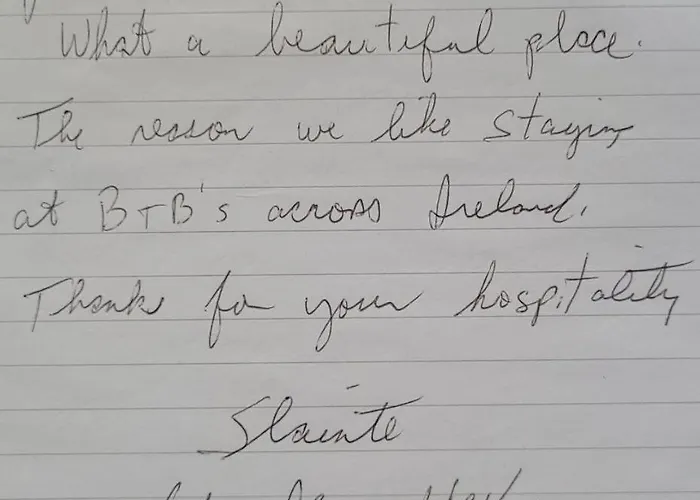 What a beautiful place.
The reason we like staying
at B+B's across Ireland.
Thanks for your hospitality
Slainte